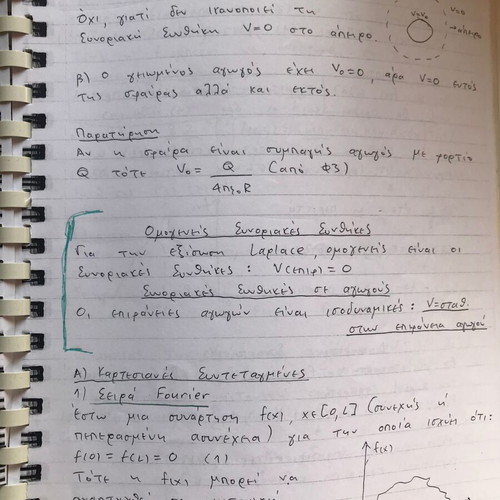 Όχι, γιατί δεν ικανοποιεί τη
συνοριακή συνθήκη V=0 στο άπειρο.
β) Ο γειωμένος αγωγός έχει V₀=0, άρα V=0 εντός
της σφαίρας αλλά και εκτός.
Παρατήρηση
Αν η σφαίρα είναι συμπαγής αγωγός με φορτίο
Q τότε V₀ = Q / 4πε₀R (από Φ3)
Ομογενείς Συνοριακές Συνθήκες
Για την εξίσωση Laplace, ομογενείς είναι οι
συνοριακές συνθήκες: V(επιφ) = 0
Συνοριακές Συνθήκες σε αγωγούς
Οι επιφάνειες αγωγών είναι ισοδυναμικές: V=σταθ.
στην επιφάνεια αγωγού
Α) Καρτεσιανές Συντεταγμένες
1) Σειρά Fourier
Έστω μια συνάρτηση f(x), x∈[0,L] (συνεχής ή
πεπερασμένη ασυνέχεια) για την οποία ισχύει ότι:
f(0) = f(L) = 0 (1)
Τότε η f(x) μπορεί να